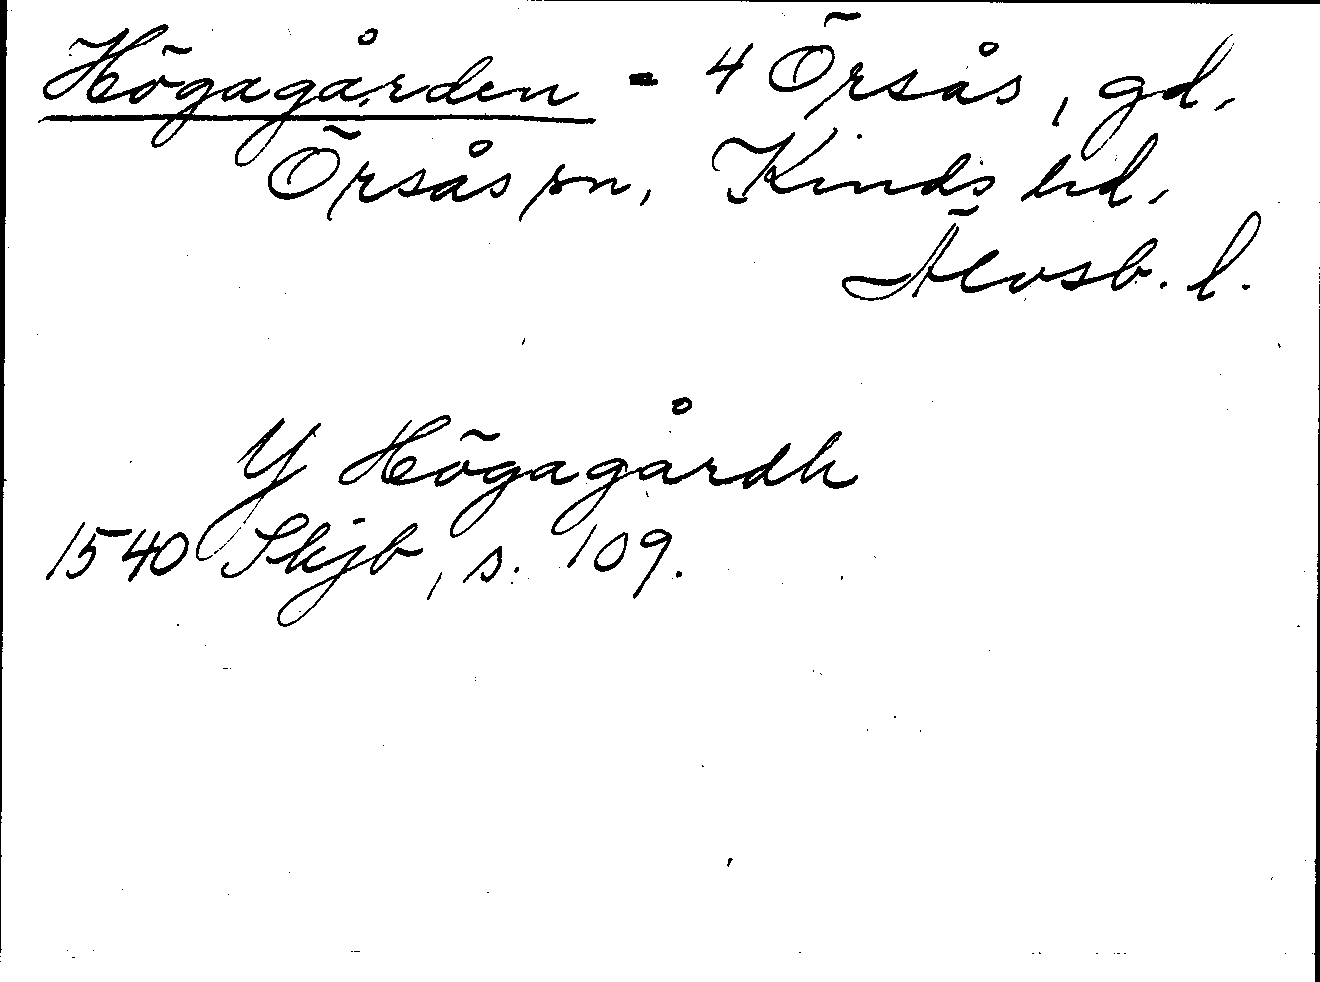 Högagården = 4 Örsås, gd.
Örsås sn, Kinds hd,
Älvsb. l.
Y Högagårdh
1540 Skjb, s. 109.